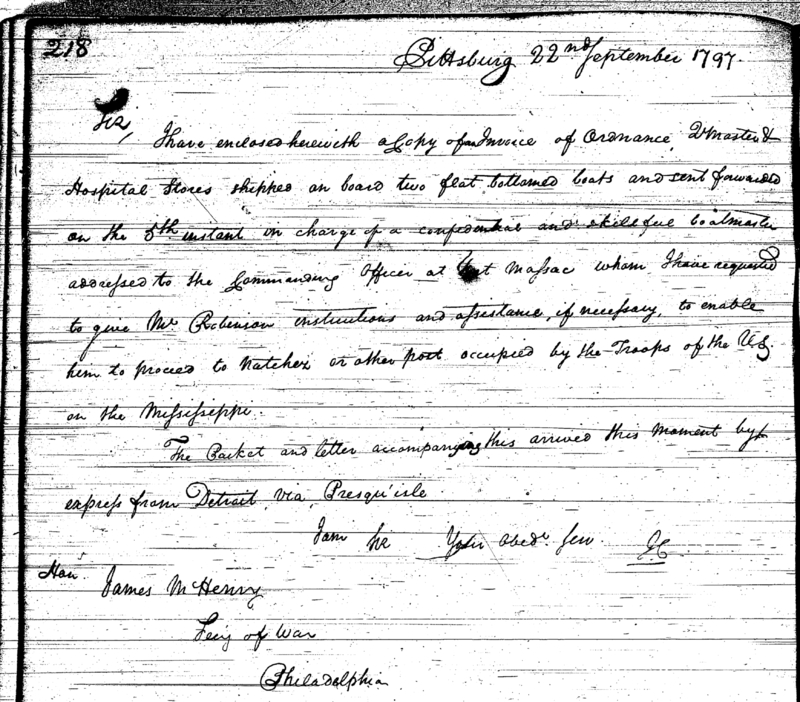 218
Pittsburg 22nd September 1797.
Sir,
I have enclosed herewith a Copy of an Invoice of Ordnance, Qr Master &
Hospital Stores shipped on board two flat bottomed boats and sent forwarded
on the 5th instant in charge of a confidential and skillful boatmaster
addressed to the Commanding Officer at Fort Massac whom I have requested
to give Mr Robinson instructions and assistance, if necessary, to enable
him to proceed to Natchez or other post occupied by the Troops of the U S.
on the Mississeppi.
The Packet and letter accompanying this arrived this moment by
express from Detroit via Presqu'isle
I am Sir Your Obedt. Serv. I C
Honr. James McHenry
Secy of War
Philadelphia